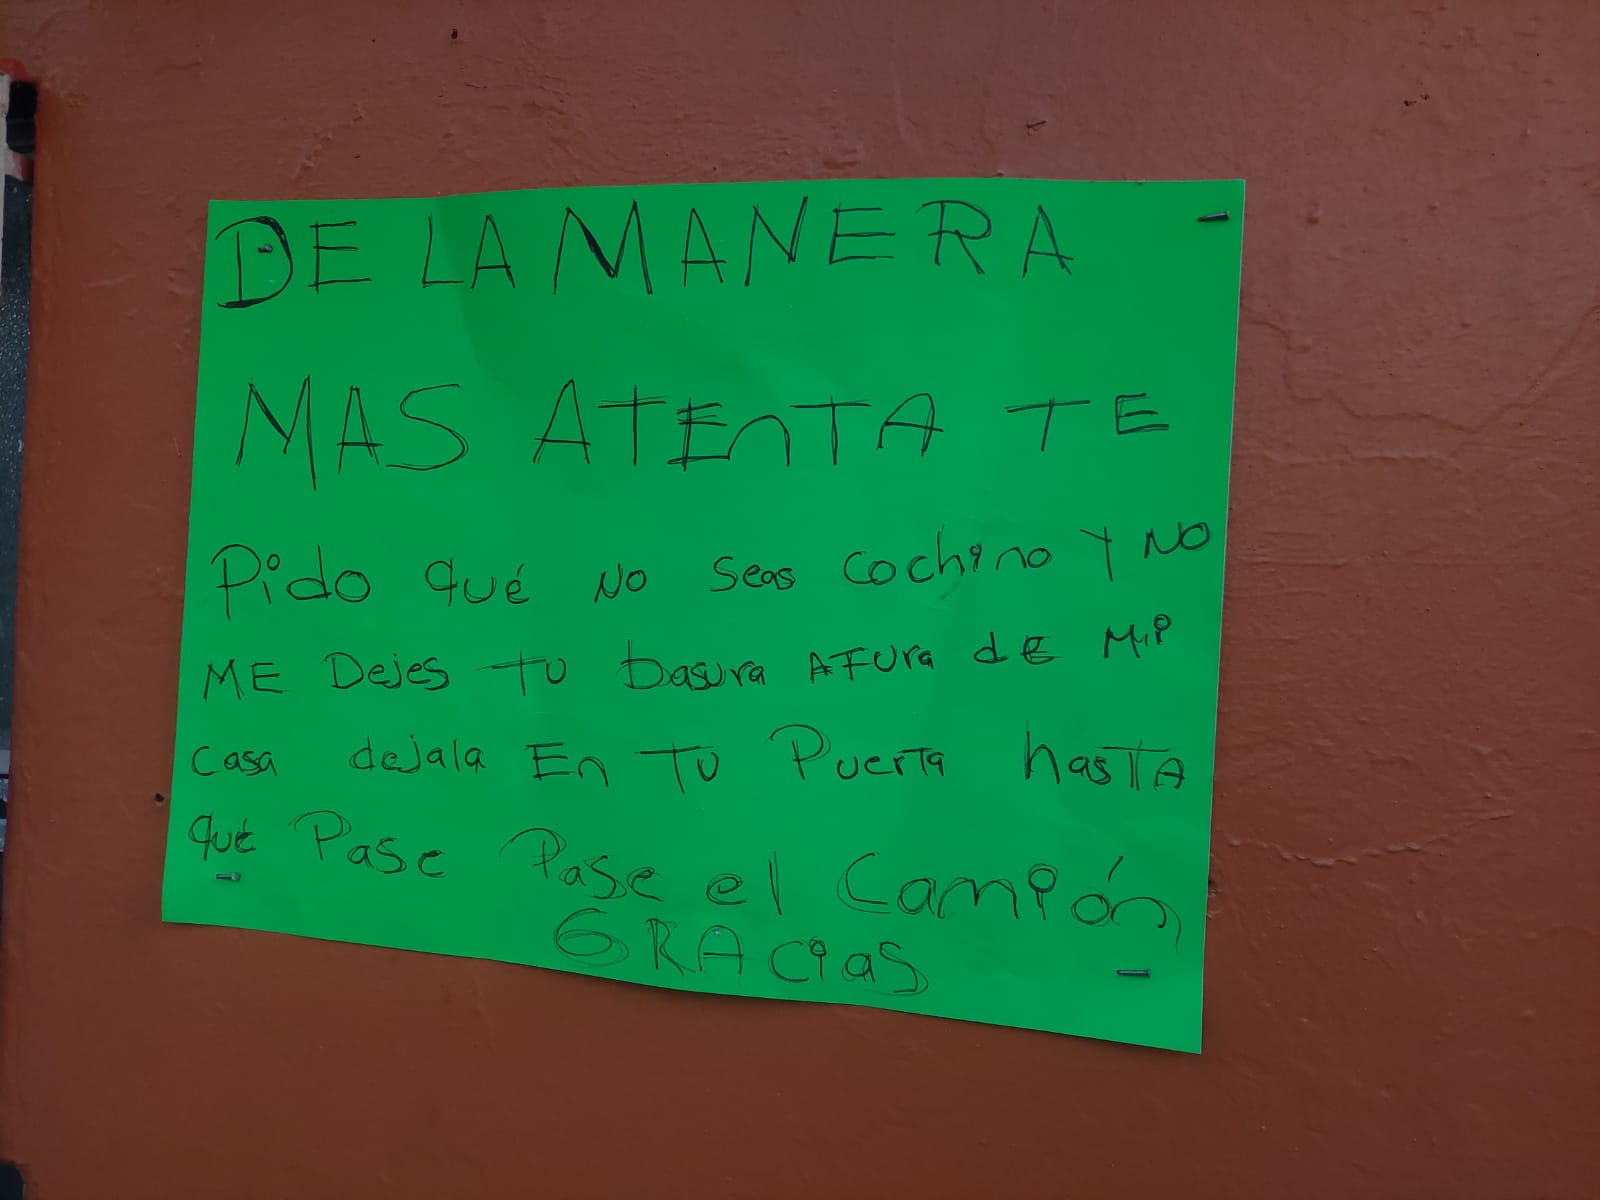 DE LA MANERA
MAS ATEnTA TE
Pido qué NO seas cochino Y NO
ME Dejes TU basura AFUra dE Mi
casa dejala En TU PuerTa hasTA
qué Pase Pase el Camión
GRAcias